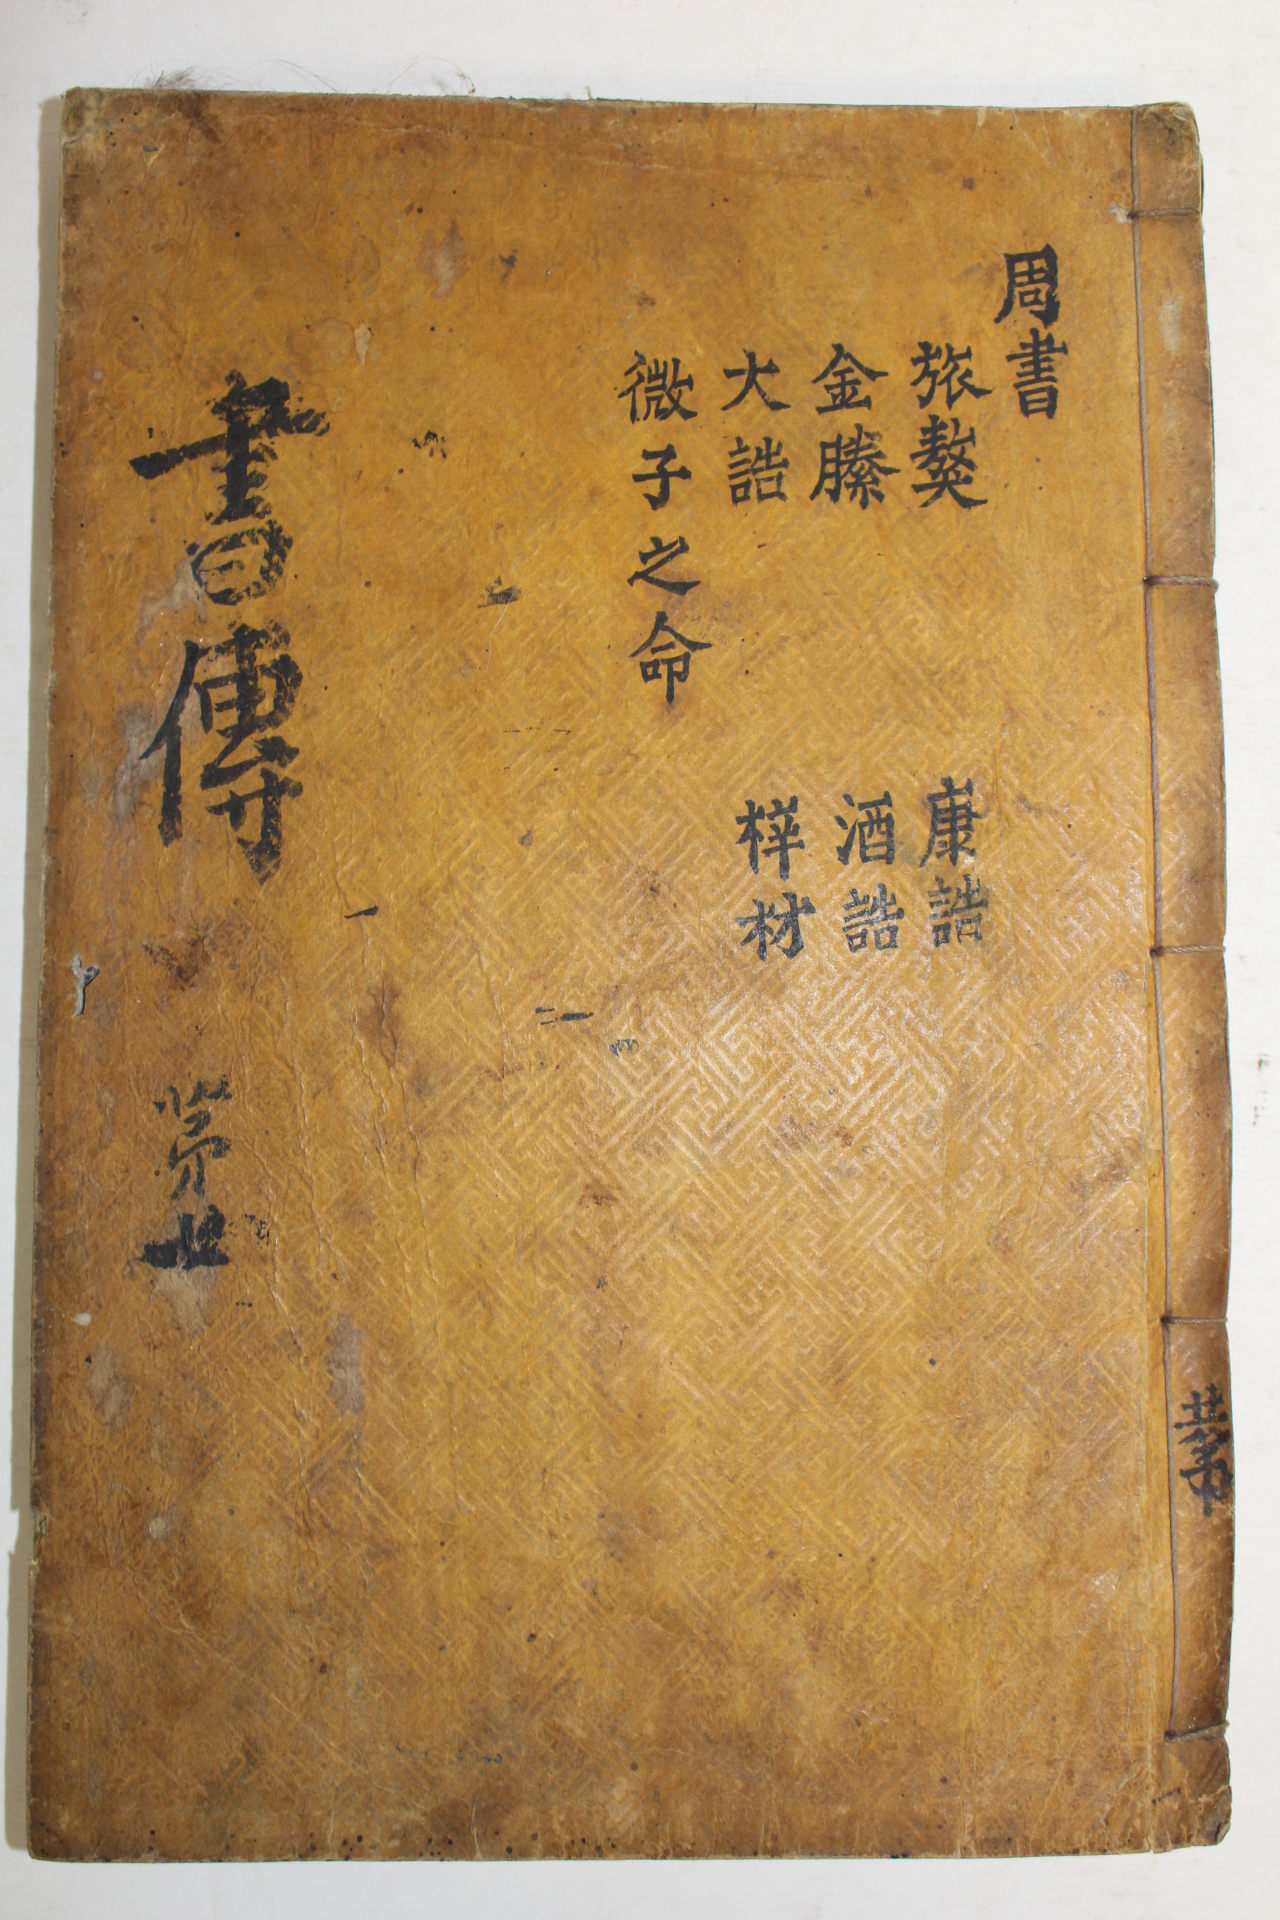 周書
旅獒
金縢
大誥
微子之命
康誥
酒誥
梓材
書傳